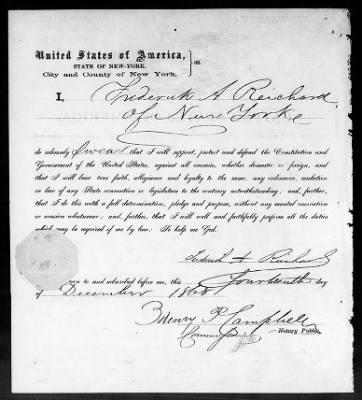 United States of America,
STATE OF NEW-YORK.
City and County of New York,
ss.
I, Frederick A Reichard
of New Yorke
do solemnly Swear that I will support, protect and defend the Constitution and
Government of the United States, against all enemies, whether domestic or foreign, and
that I will bear true faith, allegiance and loyalty to the same, any ordinance, resolution
or law of any State convention or legislature to the contrary notwithstanding; and, further,
that I do this with a full determination, pledge and purpose, without any mental reservation
or evasion whatsoever; and, further, that I will well and faithfully perform all the duties
which may be required of me by law. So help me God.
Fredrick A Reichard
orn to and subscribed before me, this Fourteenth day
of December 1868
Henry P. Campbell
Notary Public.